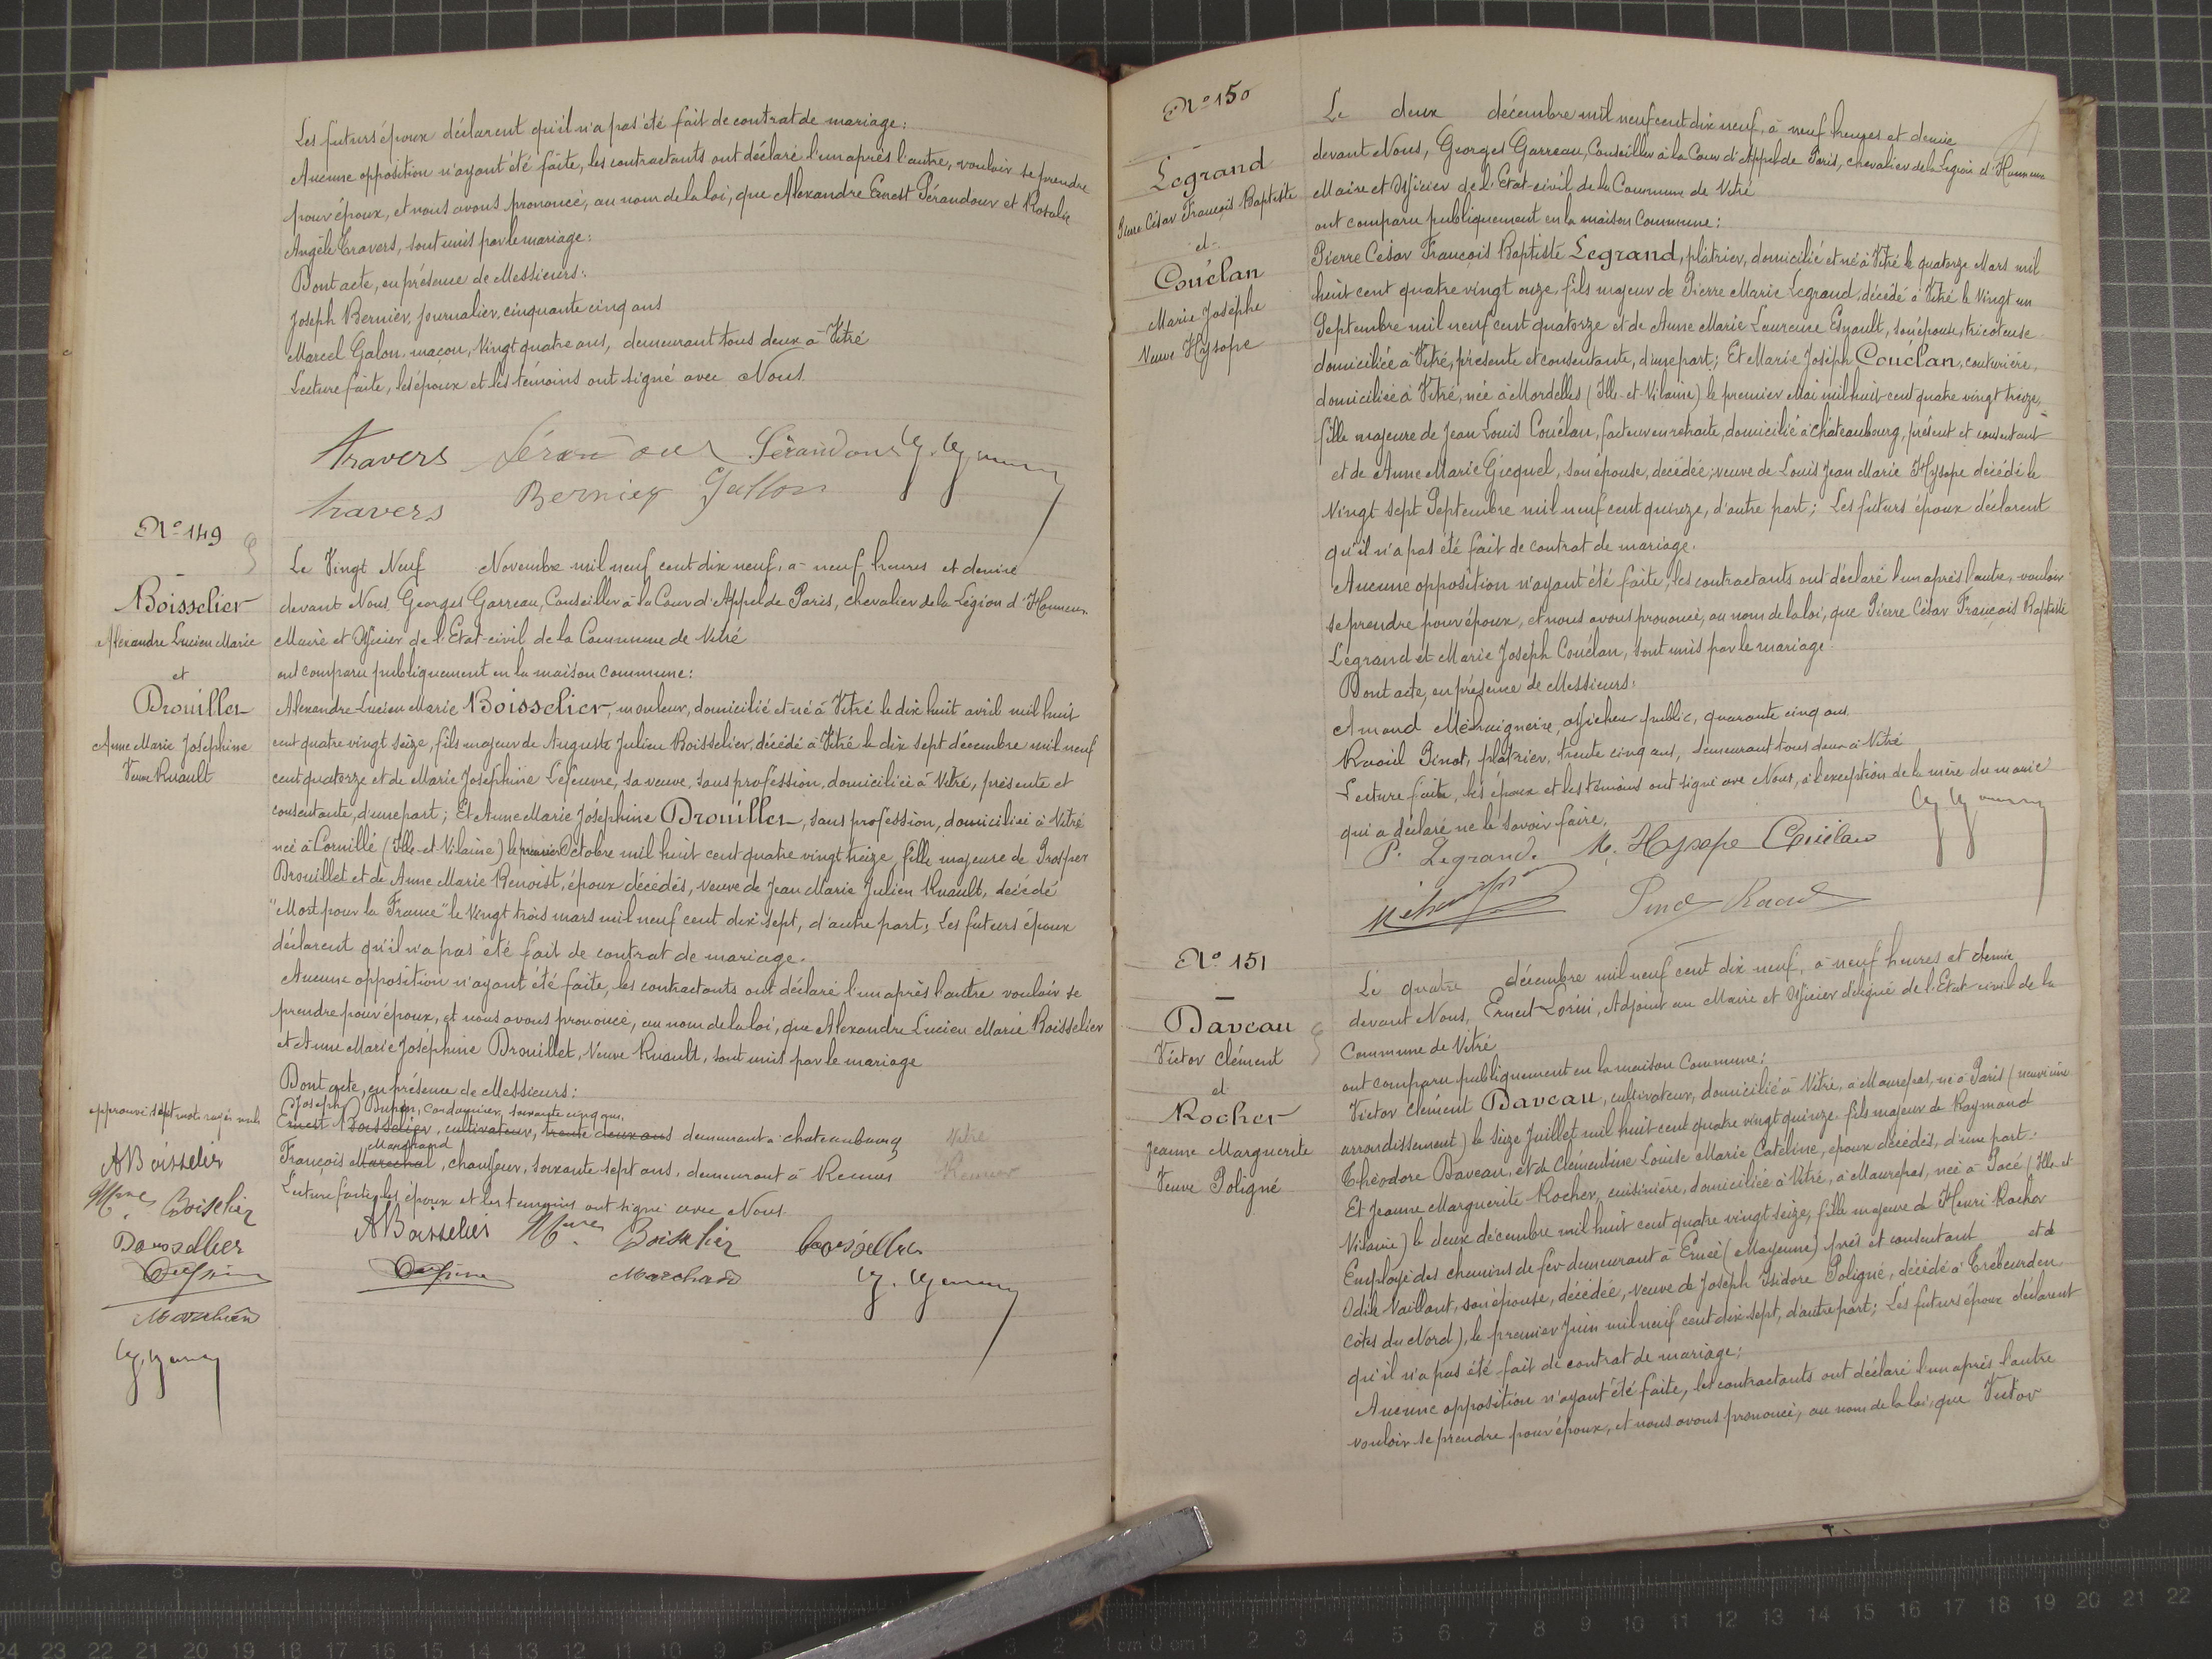 Les futurs époux déclarent qu'il n'a pas été fait de contrat de mariage:
Aucune opposition n'ayant été faite, les contractants ont déclaré l'un après l'autre, vouloir se prendre
pour époux, et nous avons prononcé, au nom de la loi, que Alexandre Ernest Sérandour et Rosalie
Angèle Travers, sont unis par le mariage:
Dont acte, en présence de Messieurs:
Joseph Bernier, journalier, cinquante cinq ans
Marcel Galon, maçon, Vingt quatre ans, demeurant tous deux à Vitré
Lecture faite, les époux et les témoins ont signé avec Nous.
Travers Sérandour Sérandour
Travers Bernier Gallon
N° 149
Boisselier
Alexandre Lucien Marie
et
Drouillet
Anne Marie Joséphine
Veuve Ruault
Le Vingt Neuf Novembre mil neuf cent dix neuf, à neuf heures et demie
devant Nous, Georges Garreau, Conseiller à la Cour d'Appel de Paris, chevalier de la Légion d'Honneur
Maire et Officier de l'Etat-civil de la Commune de Vitré
ont comparu publiquement en la maison commune:
Alexandre Lucien Marie Boisselier, mouleur, domicilié et né à Vitré le dix huit avril mil huit
cent quatre vingt seize, fils majeur de Auguste Julien Boisselier, décédé à Vitré le dix sept décembre mil neuf
cent quatorze et de Marie Joséphine Lefeuvre, sa veuve, sans profession, domiciliée à Vitré, présente et
consentante, d'une part; Et Anne Marie Joséphine Drouillet, sans profession, domiciliée à Vitré
née à Cornillé (Ille-et-Vilaine) le premier Octobre mil huit cent quatre vingt treize, fille majeure de Prosper
Drouillet et de Anne Marie Benoist, époux décédés, veuve de Jean Marie Julien Ruault, décédé
"Mort pour la France" le Vingt trois mars mil neuf cent dix sept, d'autre part; Les futurs époux
déclarent qu'il n'a pas été fait de contrat de mariage.
Aucune opposition n'ayant été faite, les contractants ont déclaré l'un après l'autre vouloir se
prendre pour époux, et nous avons prononcé, au nom de la loi, que Alexandre Lucien Marie Boisselier
et Anne Marie Joséphine Drouillet, Veuve Ruault, sont unis par le mariage
Dont acte, en présence de Messieurs:
Joseph Dupin, Cordonnier, soixante cinq ans,
Ernest Boisselier, cultivateur, trente deux ans demeurant à chateaubourg Vitré
Marchand
François Maréchal, chauffeur, soixante sept ans, demeurant à Rennes Rennes
Lecture faite, les époux et les témoins ont signé avec Nous.
approuvé sept mots rayés nuls
ABoisselier
Mme Boiselier
Boisselier
Marchand
ABoisselier Mme Boiselier
Marchand
N° 150
Legrand
Pierre César François Baptiste
et
Couëlan
Marie Josèphe
Veuve Hysope
Le deux décembre mil neuf cent dix neuf, à neuf heures et demie
devant Nous, Georges Garreau, Conseiller à la Cour d'Appel de Paris, chevalier de la Légion d'Honneur
Maire et Officier de l'Etat-civil de la Commune de Vitré
ont comparu publiquement en la maison Commune:
Pierre César François Baptiste Legrand, plâtrier, domicilié et né à Vitré le quatorze Mars mil
huit cent quatre vingt onze, fils majeur de Pierre Marie Legrand, décédé à Vitré le Vingt un
Septembre mil neuf cent quatorze et de Anne Marie Laurence Esnault, son épouse, tricoteuse
domiciliée à Vitré, présente et consentante, d'une part; Et Marie Joséph Couëlan, couturière,
domiciliée à Vitré, née à Mordelles (Ille-et-Vilaine) le premier Mai mil huit cent quatre vingt treize,
fille majeure de Jean Louis Couëlan, facteur en retraite, domicilié à Châteaubourg, présent et consentant
et de Anne Marie Gicquel, son épouse, décédée; veuve de Louis Jean Marie Hysope décédé le
Vingt sept Septembre mil neuf cent quinze, d'autre part; Les futurs époux déclarent
qu'il n'a pas été fait de contrat de mariage.
Aucune opposition n'ayant été faite, les contractants ont déclaré l'un après l'autre, vouloir
se prendre pour époux, et nous avons prononcé, au nom de la loi, que Pierre César François Baptiste
Legrand et Marie Joseph Couëlan, sont unis par le mariage.
Dont acte, en présence de Messieurs:
Amand Méhaignerie, afficheur public, quarante cinq ans.
Raoul Pinot, plâtrier, trente cinq ans, demeurant tous deux à Vitré
Lecture faite, les époux et les témoins ont signé avec Nous, à l'exception de la mère du marié
qui a déclaré ne le savoir faire.
P. Legrand. M. Hysope Couëlan
Pinot Raoul
N° 151
Daveau
Victor Clément
et
Rocher
Jeanne Marguerite
Veuve Poligné
Le quatre décembre mil neuf cent dix neuf, à neuf heures et demie
devant Nous, Ernest Lorin, Adjoint au Maire et Officier délégué de l'Etat civil de la
Commune de Vitré
ont comparu publiquement en la maison Commune:
Victor Clément Daveau, cultivateur, domicilié à Vitré, à Maurepas, né à Paris (neuvième
arrondissement) le seize Juillet mil huit cent quatre vingt quinze, fils majeur de Raymond
Théodore Daveau, et de Clémentine Louise Marie Cateline, époux décédés, d'une part.
Et Jeanne Marguerite Rocher, cuisinière, domiciliée à Vitré, à Maurepas, née à Pocé (Ille et
Vilaine) le deux décembre mil huit cent quatre vingt seize, fille majeure de Henri Rocher
Employé des chemins de fer demeurant à Ernée (Mayenne) prés et consentant et de
Odile Vaillant, son épouse, décédée, veuve de Joseph Isidore Poligné, décédé à Trébeurden
Côtes du Nord), le premier Juin mil neuf cent dix sept, d'autre part; Les futurs époux déclarent
qu'il n'a pas été fait de contrat de mariage;
Aucune opposition n'ayant été faite, les contractants ont déclaré l'un après l'autre
vouloir se prendre pour époux, et nous avons prononcé, au nom de la loi, que Victor
9 8 7 6 5 4 3 2
5
24 23 22 21 20 19 18 17 16 15 14 13 12 11 10 9 8
3 2 1 cm 0 cm 1 2 3 4 5 6 7 8 9 10 11 12 13 14 15 16 17 18 19 20 21 22